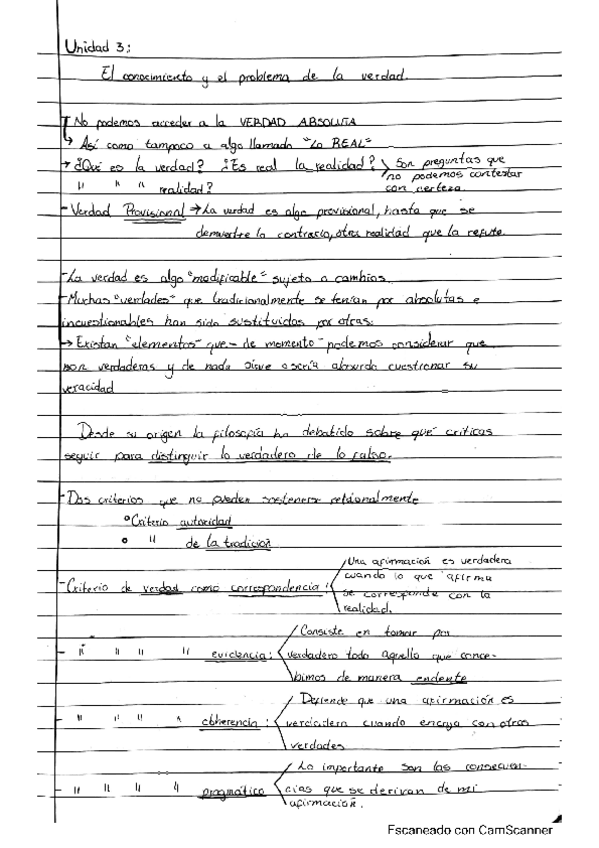 Unidad 3:
El conocimiento y el problema de la verdad.
No podemos acceder a la VERDAD ABSOLUTA
→ Así como tampoco a algo llamado "Lo REAL"
→ ¿Qué es la verdad? ¿Es real la realidad? Son preguntas que
no podemos contestar
" " " realidad? con certeza.
- Verdad Provisional → La verdad es algo provisional, hasta que se
demuestre lo contrario, otra realidad que la refute.
- La verdad es algo "modificable" sujeto a cambios.
- Muchas "verdades" que tradicionalmente se tenían por absolutas e
incuestionables han sido sustituidas por otras.
→ Existan "elementos" que - de momento - podemos considerar que
son verdaderas y de nada sirve o sería absurdo cuestionar su
veracidad
Desde su origen la filosofía ha debatido sobre qué criticas
seguir para distinguir lo verdadero de lo falso.
- Dos criterios que no pueden sostenerse racionalmente
° Criterio autoridad
° " de la tradición
Una afirmación es verdadera
- Criterio de verdad como correspondencia: cuando lo que afirma
se corresponde con la
realidad.
Consiste en tomar por
- " " " " evidencia: verdadero todo aquello que conce-
bimos de manera
Defiende que una afirmación es
- " " " " coherencia: verdadera cuando encaja con otras
verdades
Lo importante son las consecuen-
- " " " " pragmático cias que se derivan de mi
afirmación.
Escaneado con CamScanner